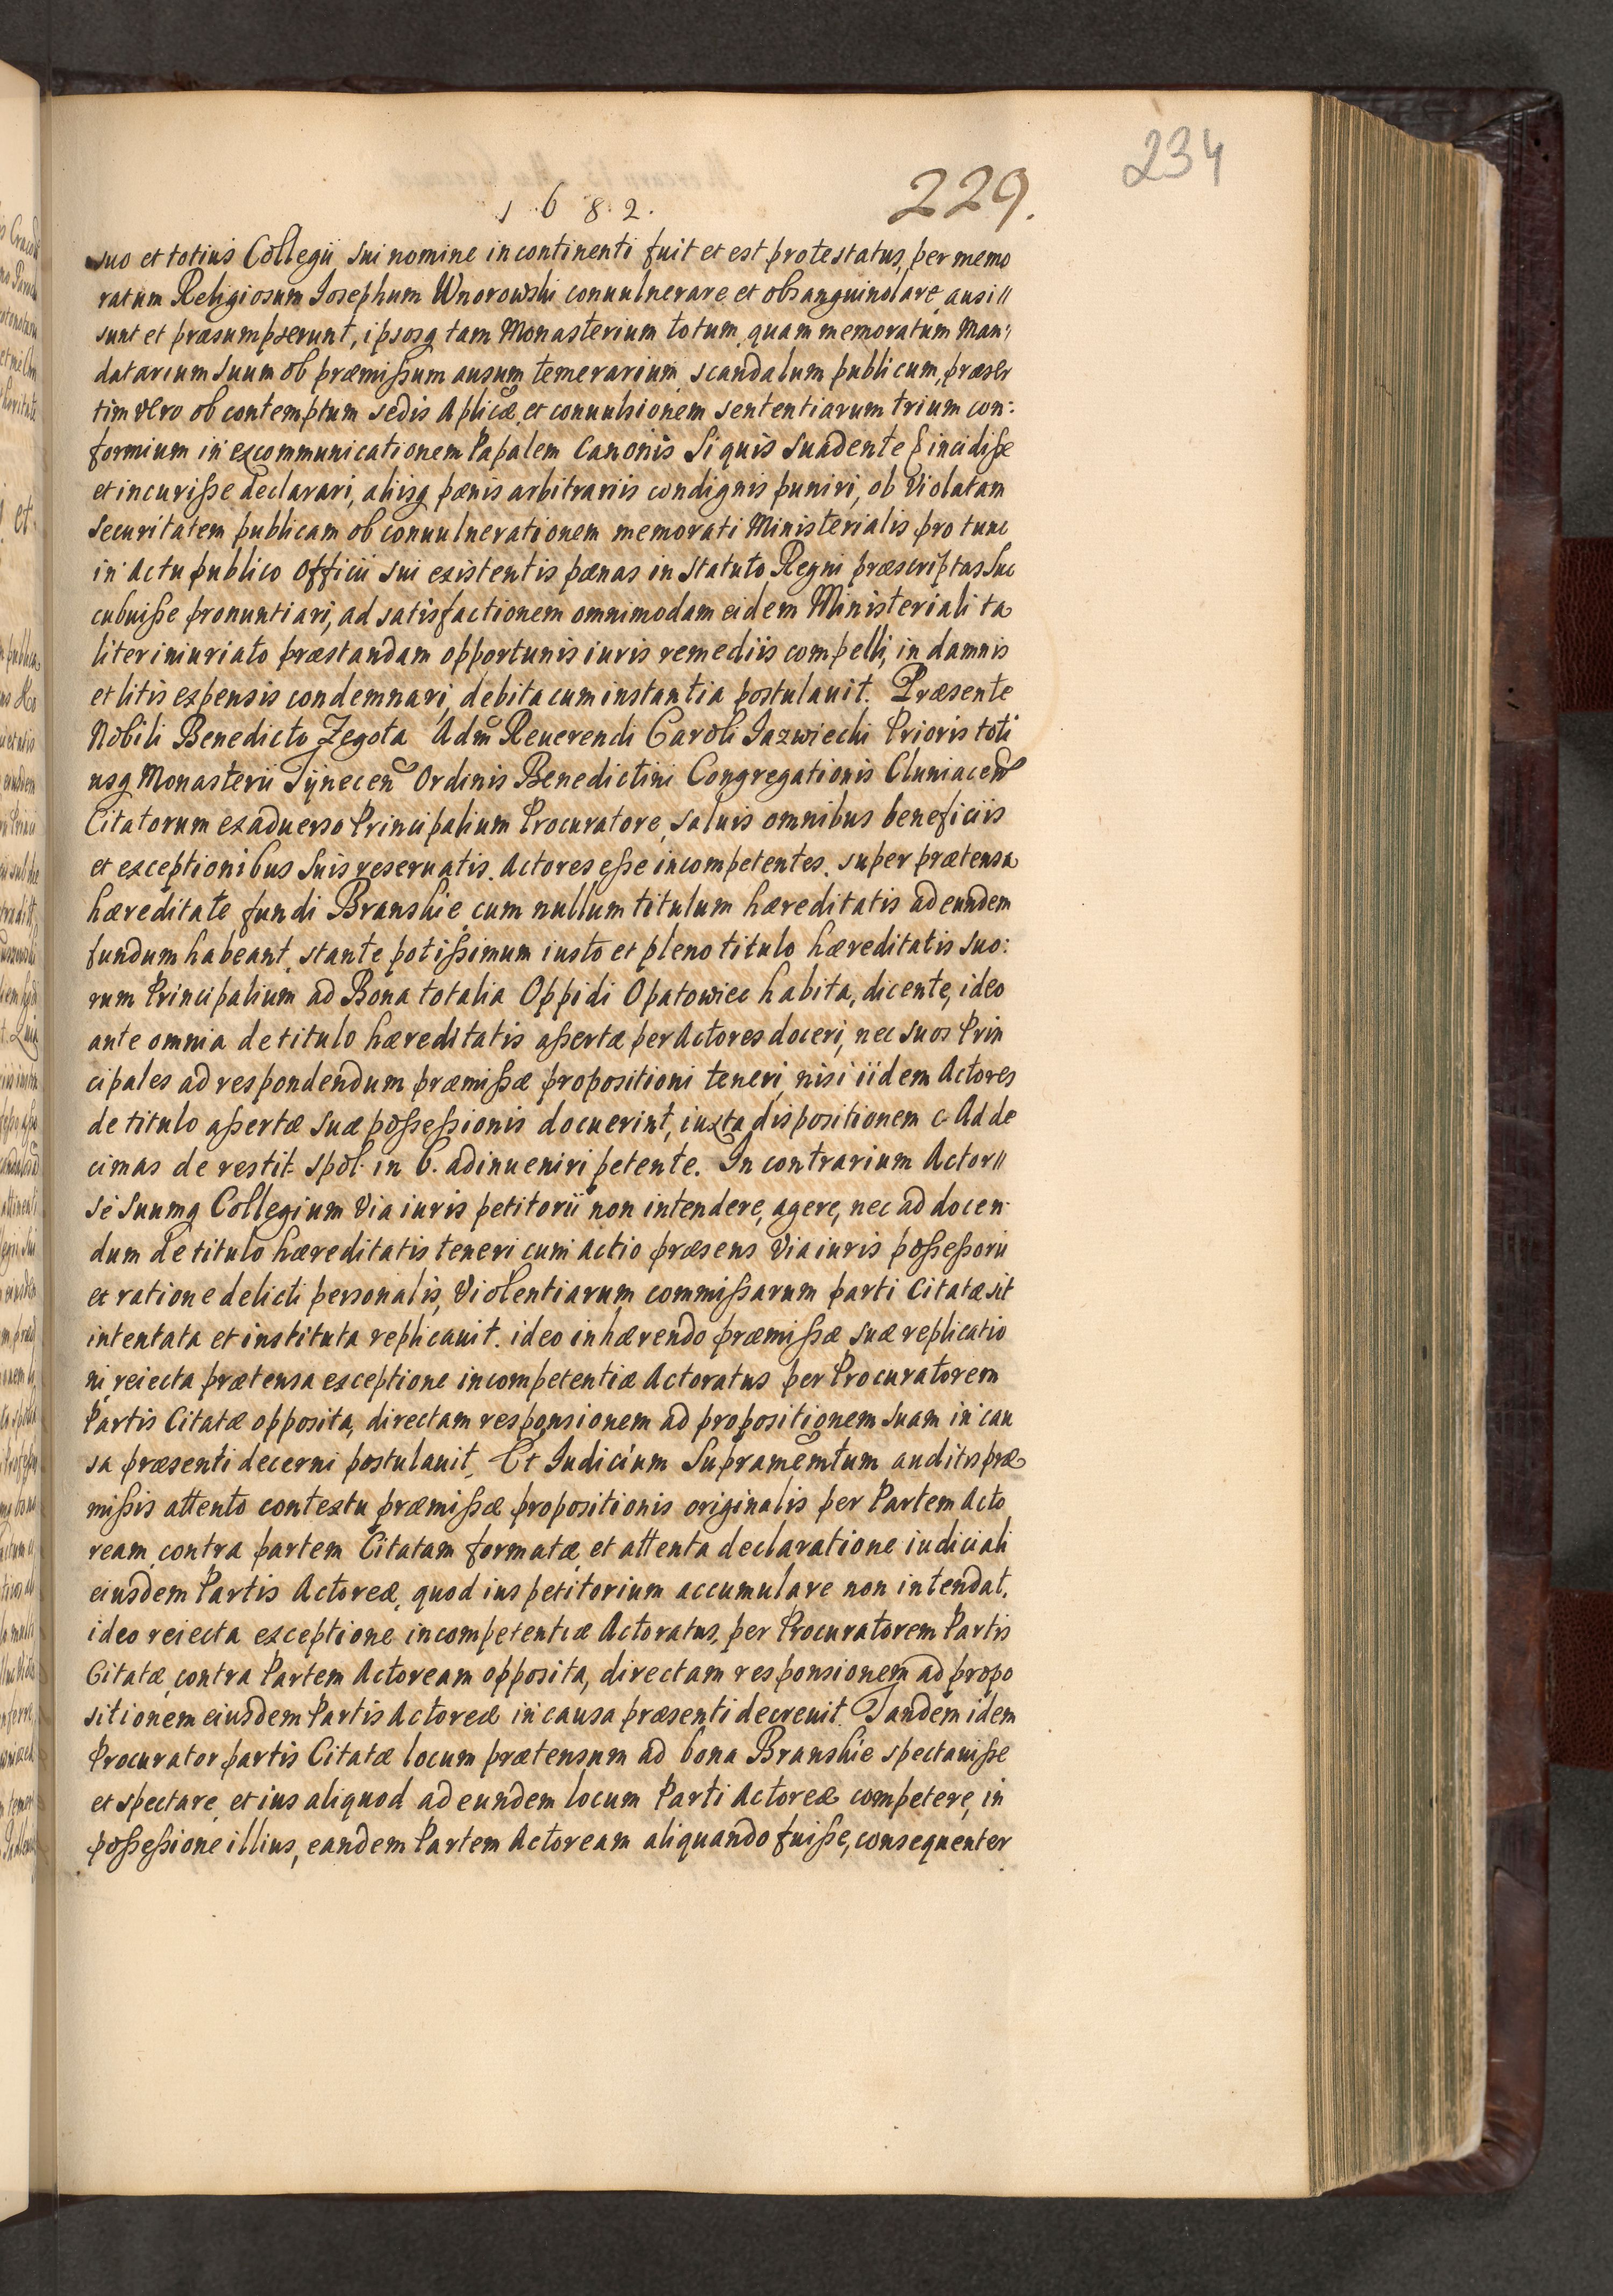 234
229.
1682.
suo et totius Collegii sui nomine incontinenti fuit et est protestatus, per memo
ratum Religiosum Iosephum Wnorowski conuulnerare et obsanguinolare ausi
sunt et præsumpserunt, ipsosq tam Monasterium totum, quam memoratum Man:
datarium suum ob præmißum ausum temerarium, scandalum publicum, præser
tim vero ob contemptum sedis Aplicæ, et conuulsionem sententiarum trium con:
formium in excommunicationem Papalem Canonis Si quis suadente incidiße
et incuriße declarari, aliisq pænis arbitrariis condignis puniri, ob violatam
securitatem publicam ob conuulnerationem memorati Ministerialis pro tunc
in actu publico officii sui existentis pænas in statuto Regni præscriptas suc
cubuiße pronuntiari, ad satisfactionem omnimodam eidem Ministeriali ta
liter iniuriato præstandam opportunis iuris remediis compelli, in damnis
et litis expensis condemnari, debita cum instantia postulauit. Præsente
Nobili Benedicto Zegota Adm Reuerendi Caroli Iazwiecki Prioris toti
usq Monasterii Tÿnecen Ordinis Benedictini Congregationis Cluniacen
Citatorum ex aduerso Principalium Procuratore, saluis omnibus beneficiis
et exceptionibus suis reseruatis. Actores eße incompetentes. super prætensa
hæreditate fundi Branskie, cum nullum titulum hæreditatis ad eundem
fundum habeant, stante potißimum iusto et pleno titulo hæreditatis suo:
rum Principalium ad Bona totalia Oppidi Opatowiec habita, dicente, ideo
ante omnia de titulo hæreditatis aßertæ per Actores doceri, nec suos Prin
cipales ad respondendum præmißæ propositioni teneri, nisi iidem Actores
de titulo aßertæ suæ poßeßionis docuerint, iuxta dispositionem c. Ad de
cimas de restit. spol. in 6. adinueniri petente. In contrarium Actor
se suumq Collegium via iuris petitorii non intendere, agere, nec ad docen
dum de titulo hæreditatis teneri cum actio præsens via iuris poßeßorii
et ratione delicti personalis, violentiarum commißarum parti Citatæ sit
intentata et instituta replicauit. ideo inhærendo præmißæ suæ replicatio
ni, reiecta prætensa exceptione incompetentiæ Actoratus per Procuratorem
Partis Citatæ opposita, directam responsionem ad propositionem suam in cau
sa præsenti decerni postulauit, Et Iudicium Supramemtum auditis præ
mißis attento contextu præmißæ propositionis originalis per Partem Acto
ream, contra partem Citatam formatæ, et attenta declaratione iudiciali
eiusdem Partis Actoreæ, quod ius petitorium accumulare non intendat,
ideo reiecta exceptione incompetentiæ Actoratus, per Procuratorem Partis
Citatæ, contra Partem Actoream opposita, directam responsionem ad propo
sitionem eiusdem Partis Actoreæ in causa præsenti decreuit. Tandem idem
Procurator partis Citatæ locum prætensum ad bona Branskie spectauiße
et spectare, et ius aliquod ad eundem locum Parti Actoreæ competere, in
poßeßione illius, eandem Partem Actoream aliquando fuiße, consequenter